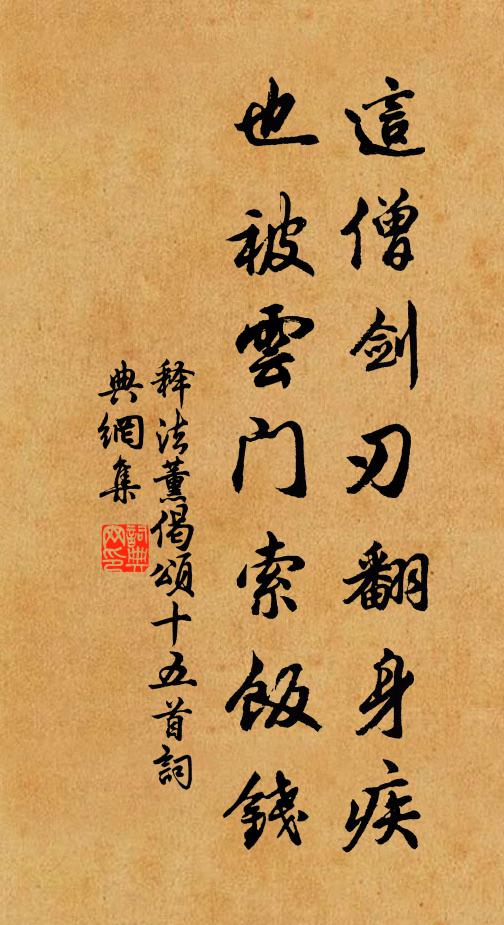 這僧劍刃翻身疾
也被雲門索飯錢
释法薰偈頌十五首詞
典網集
詞典網印